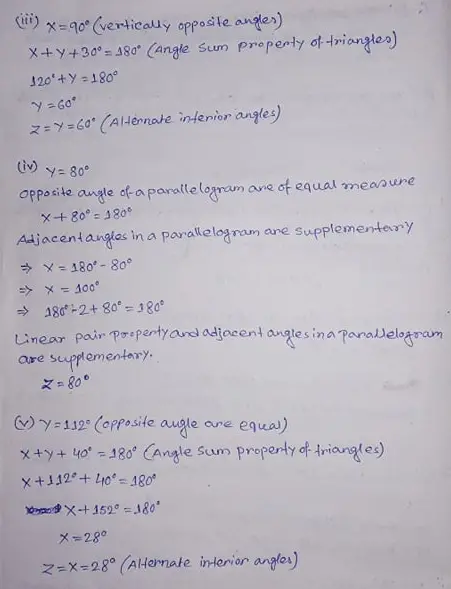 (iii) x=90° (vertically opposite angles)
x+y+30°=180° (Angle sum property of triangles)
120°+y=180°
y=60°
z=y=60° (Alternate interior angles)
(iv) y=80°
opposite angle of a parallelogram are of equal measure
x+80°=180°
Adjacent angles in a parallelogram are supplementary
⇒ x=180°-80°
⇒ x=100°
⇒ 180°-2+80°=180°
Linear pair property and adjacent angles in a parallelogram
are supplementary.
z=80°
(v) y=112° (opposite angle are equal)
x+y+40°=180° (Angle sum property of triangles)
x+112°+40°=180°
x+152°=180°
x=28°
z=x=28° (Alternate interior angles)